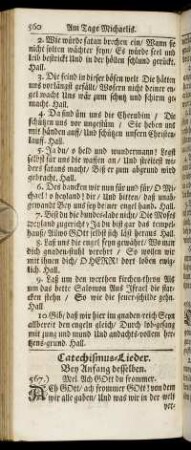 560 Am Tage Michaelis.
2. Wie würde satan brechen ein/ Wann sie
nicht solten wächter seyn/ Es würde seel und
leib bestrickt Und in der höllen schlund gerückt.
Hall.
3. Die feind in dieser bösen welt Die hätten
uns vorlängst gefällt/ Wofern nicht deiner en-
gel macht Uns wär zum schutz und schirm ge-
macht. Hall.
4. Da sind üm uns die Cherubim / Die
schützen uns wie ungestüm / Sie heben uns
mit händen auff/ Und schützen unsern Christen-
lauff. Hall.
5. Ja du/ o held und wundermann! Legst
selbst für uns die waffen an/ Und streitest wi-
ders satans macht/ Biß er zum abgrund wird
gebracht. Hall.
6. Des dancken wir nun für und für/ O Mi-
chael! o heyland! dir/ Und bitten/ daß unab-
gewandt Bey uns sey deiner engel hand. Hall.
7. Bist du die bundes-lade nicht/ Die Moses
weyland zugericht? Ja du bist gar das tempel-
haus/ Allwo GOtt selbst sich läst heraus. Hall.
8. Laß uns die engel seyn gewähret/ Wo man
dich gnaden-stuhl verehrt / So wollen wir
mit ihnen dich/ O HERR! dort loben ewig-
lich. Hall.
9. Laß um den werthen kirchen-thron Als
um das bette Salomon Aus Israel die star-
cken stehn / So wie die feuer-schilde gehn.
Hall.
10. Gib/ daß wir hier im gnaden-reich Seyn
allbereit den engeln gleich/ Durch lob-gesang
mit zung und mund Und andachts-vollen her-
tzens-grund. Hall.
Catechismus-Lieder.
Bey Anfang desselben.
567.) Mel. Ach GOtt du frommer.
ACh GOtt/ ach frommer GOtt! von dem
wir alle gaben/ Und was wir in der welt